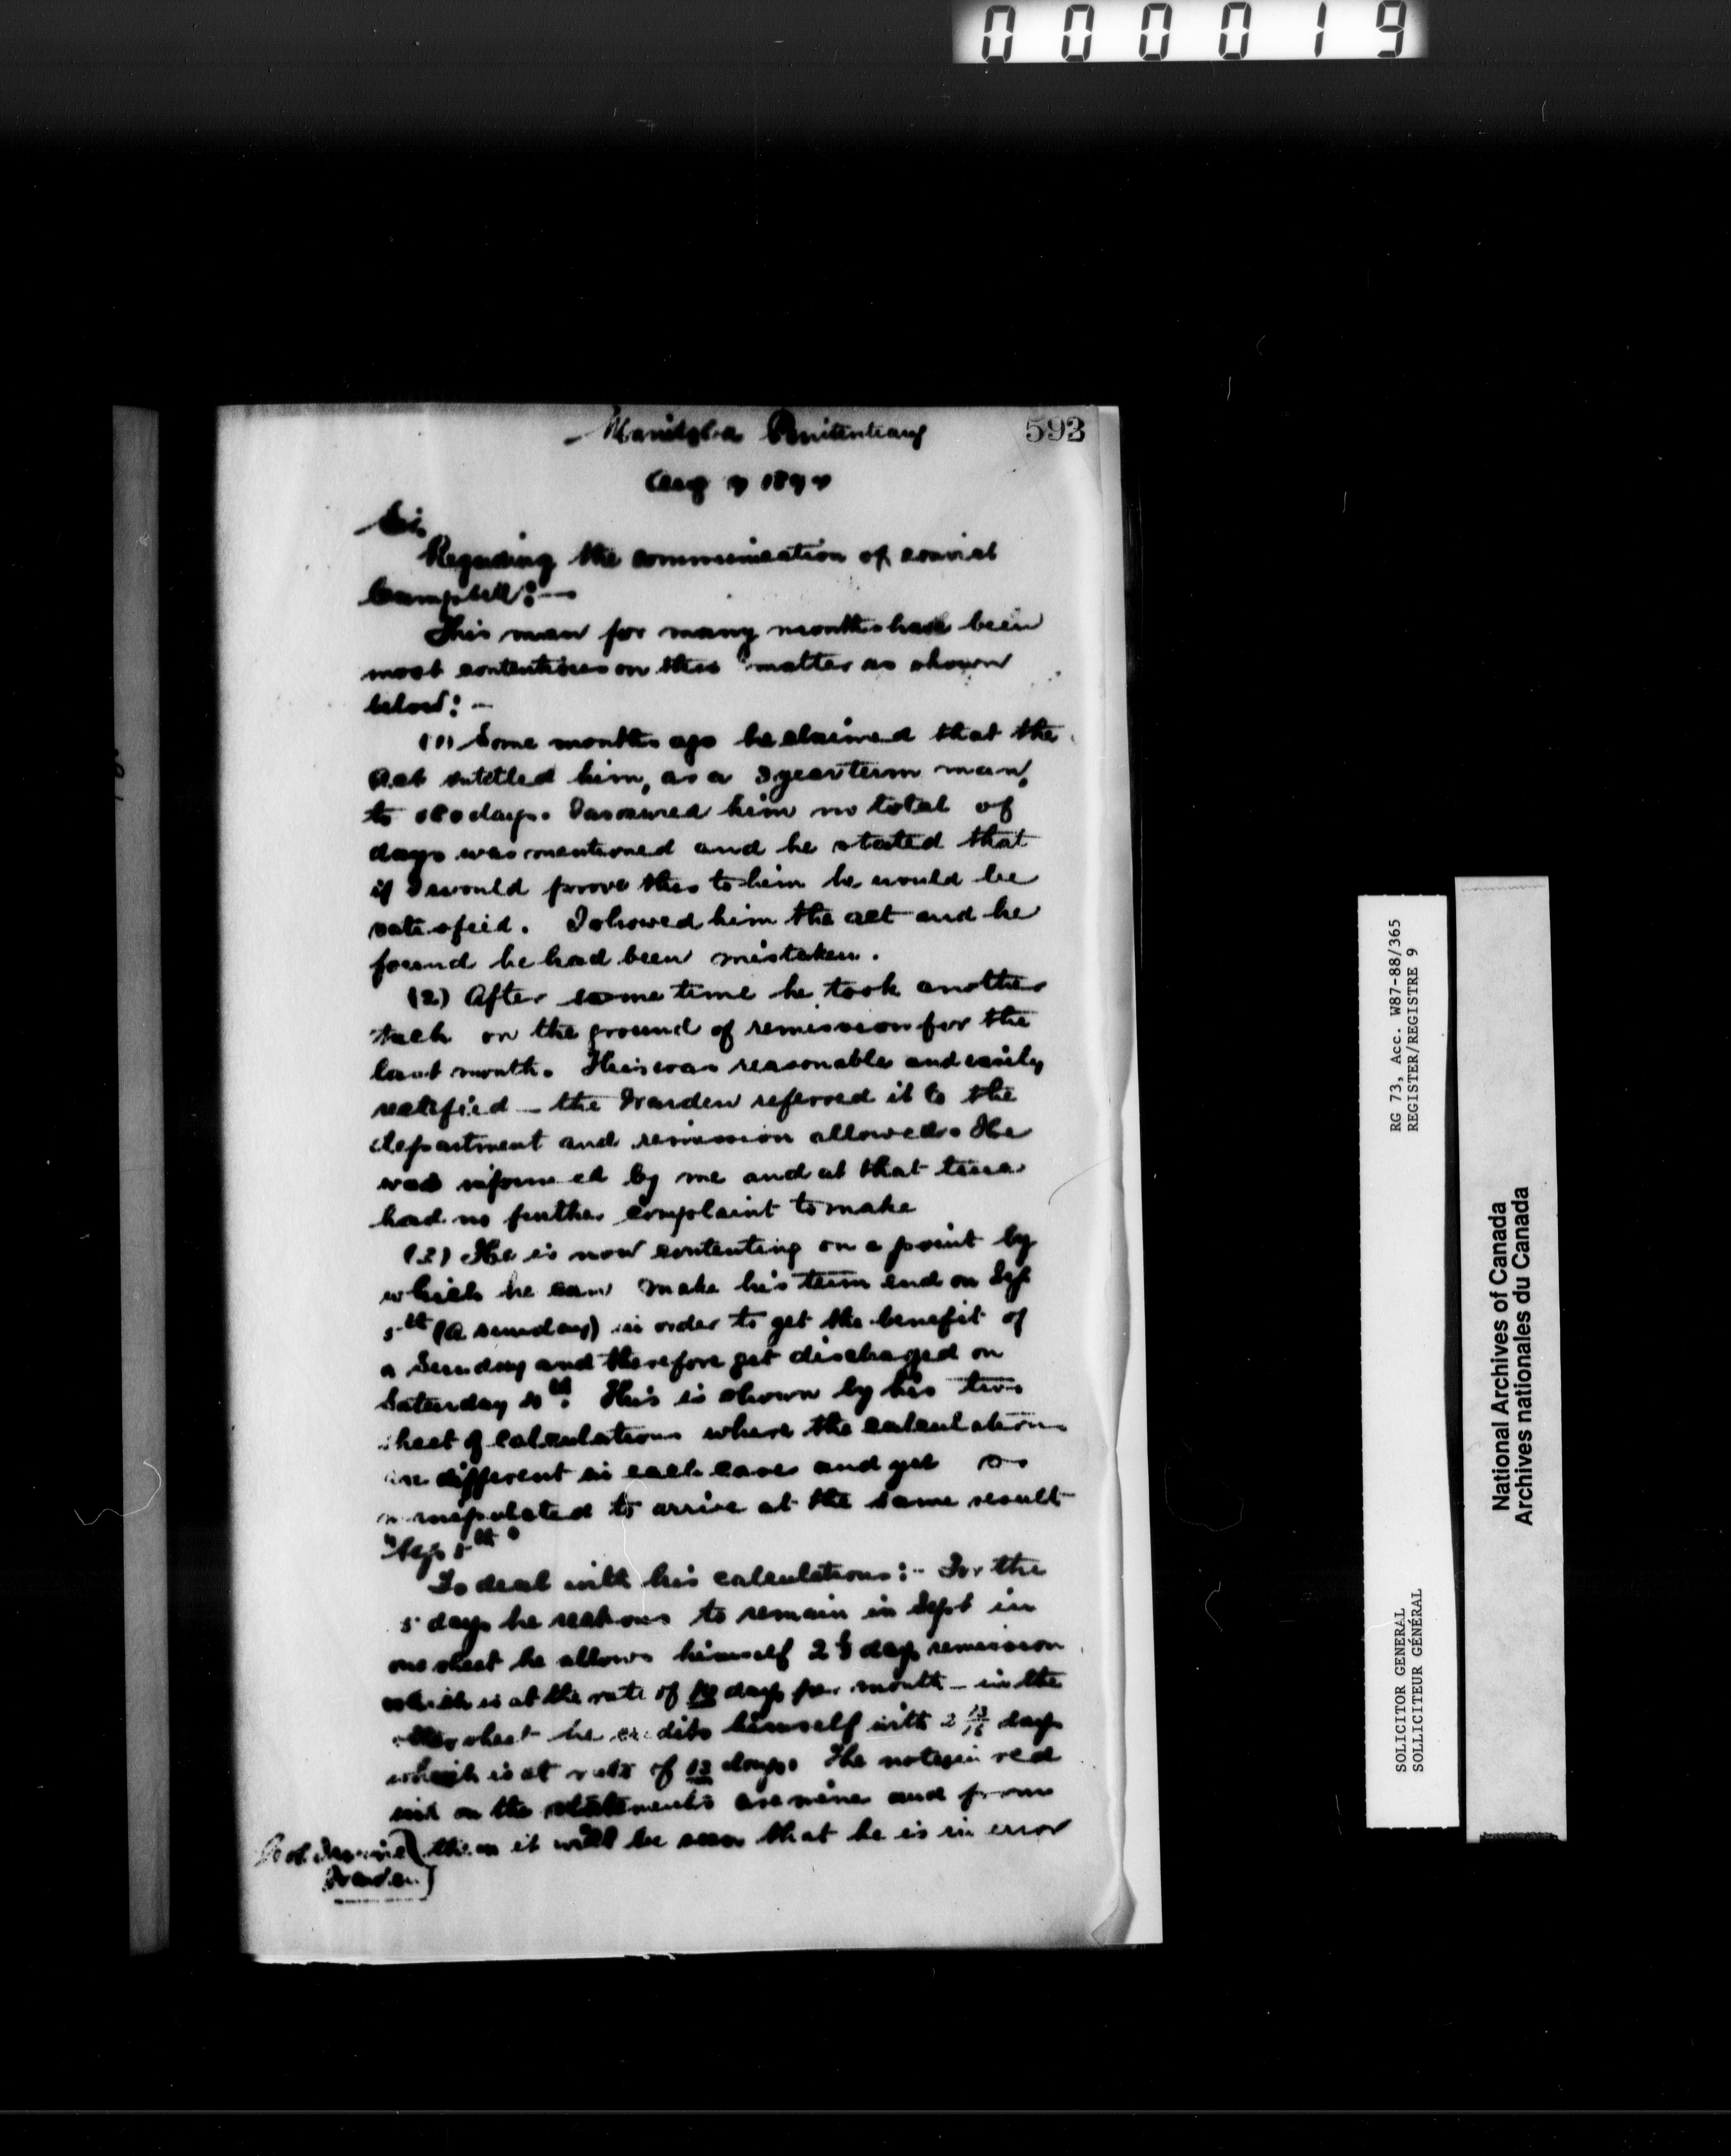 000019
Manitoba Penitentiary
593
Aug 9 189
Sir
Regarding the communication of convict
Campbell :—
This man for many months has been
most contentious on this matter as shown
below :—
(1) Some months ago he claimed that the
Act entitled him, as a 3 year term man,
to 180 days. I assured him no total of
days was mentioned and he stated that
if I would prove this to him he would be
satisfied. I showed him the act and he
found he had been mistaken.
(2) After some time he took another
tack on the ground of remission for the
last month. This was reasonable and easily
ratified — the Warden referred it to the
department and remission allowed. He
was informed by me and at that time
had no further complaint to make
(3) He is now contenting on a point by
which he can make his term end on Sep
5th (a sunday) in order to get the benefit of
a Sunday and therefore get discharged on
Saturday 4th. This is shown by his two
sheet of calculations where the calculations
are different in each case and yet so
manipulated to arrive at the same result
"Sep 5th"
To deal with his calculations :- For the
5 days he reckons to remain in Sept in
one sheet he allows himself 2 days remission
which is at the rate of 10 days per month — in the
other sheet he credits himself with 2 days
which is at rate of 13 days. The notes in red
ink on the statements are mine and from
them it will be seen that he is in error
Col. Irvine
Warden
RG 73, Acc. W87-88/365
REGISTER/REGISTRE 9
SOLICITOR GENERAL
SOLLICITEUR GÉNÉRAL
National Archives of Canada
Archives nationales du Canada